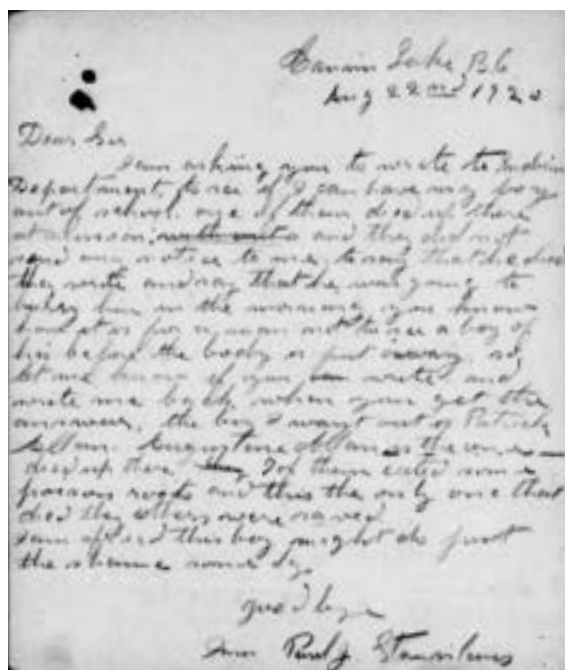 Canim Lake, B.C.
Aug 22nd 192
Dear Sir
I am asking you to write to Indian
Department, to see if I can have my boy
out of school. one of them died up there
at and they did not
send any notice to me, to say that he died
they write and say that he was going to
him in the morning, you know
how it is for a man not to see a boy of
his before the body is put away, so
let me know if you write and
write me back when you get the
answer. the boy I want out is Patrick
Allan. Augustine Allan is the one
died up there of them eated some
poison roots and this the only one that
died the others were saved
I am afraid this boy might do just
the shame some day.
good bye
from Paul Stanislaus